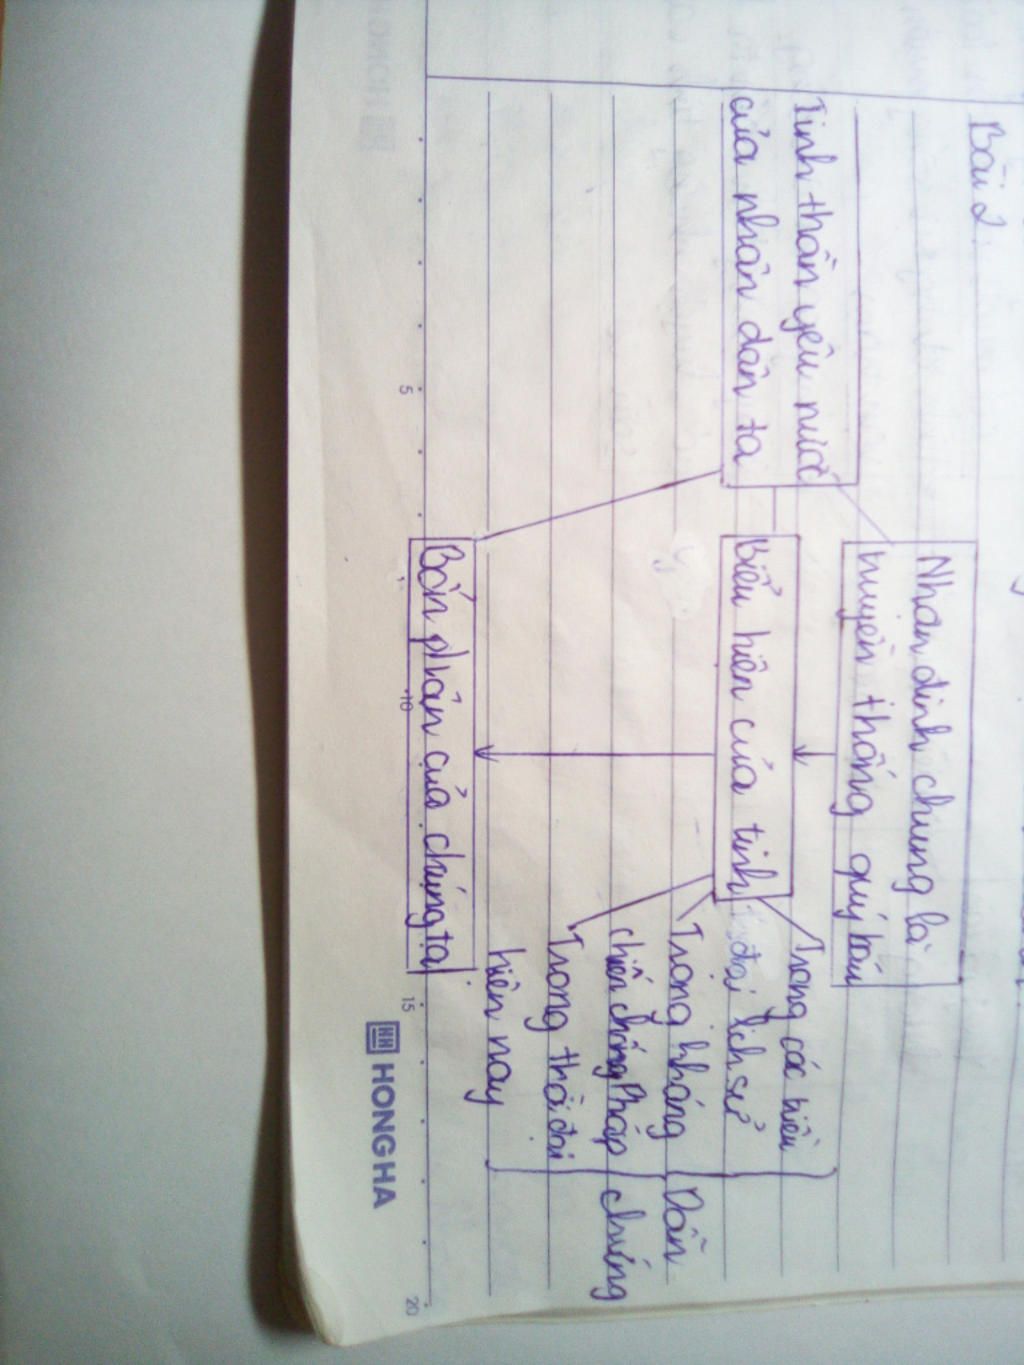 Bài 2
Nhận định chung là
truyền thống quý báu
Tinh thần yêu nước
của nhân dân ta
Biểu hiện của tinh
Trong các triều
đại lịch sử
Trong kháng
chiến chống Pháp
Trong thời đại
hiện nay
Dẫn
chứng
Bổn phận của chúng ta
5
10
15
20
HONG HA